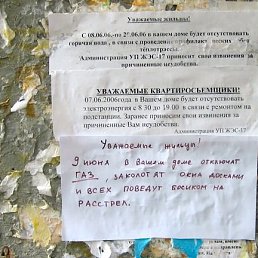 Уважаемые жильцы!
С 08.06.06.-по 27.06.06 в вашем доме будет отсутствовать
горячая вода, в связи с проведением профилактических
теплотрассы.
Администрация УП ЖЭС-17 приносит свои извинения за
причиненные неудобства.
УВАЖАЕМЫЕ КВАРТИРОСЪЕМЩИКИ!
07.06.2006года в Вашем доме будет отсутствовать
электроэнергия с 8 30 до 19 00 в связи с ремонтом на
подстанции. Заранее приносим свои извинения за
причинённые Вам неудобства.
Администрация ЖЭС-17
Уважаемые жильцы!
9 июня в вашем доме отключат
ГАЗ, заколотят окна досками
и всех поведут босиком на
расстрел.